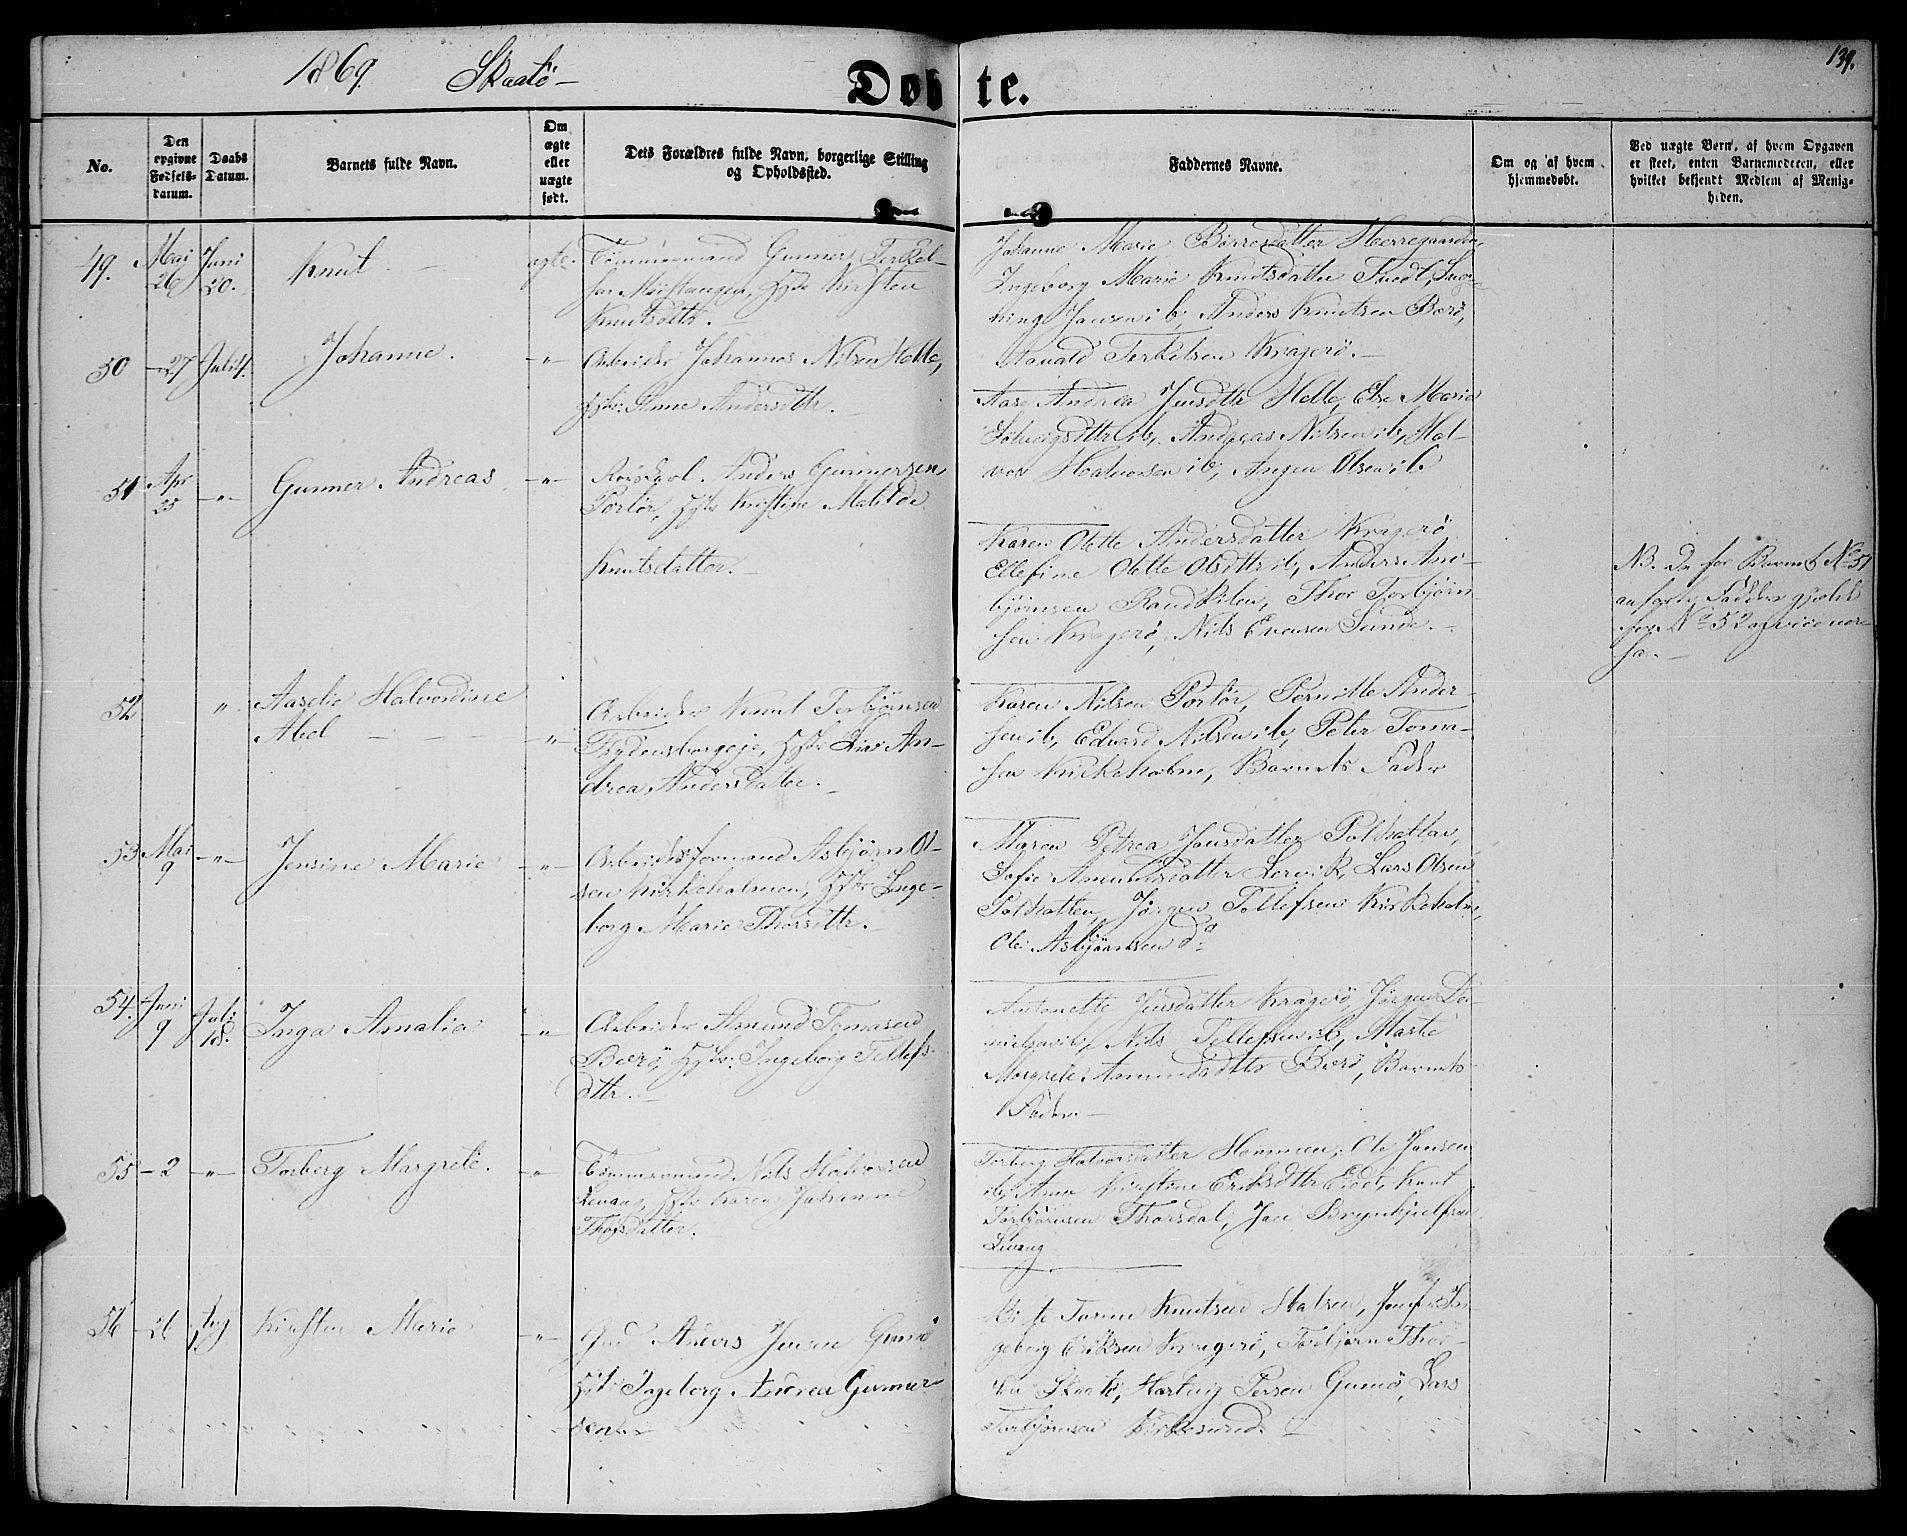 1869. Skaatö
Døbte.
139.
No.
Den opgivne Fødsels-datum.
Daabs Datum.
Barnets fulde Navn.
Om ægte eller uægte født.
Dets Forældres fulde Navn, borgerlige Stilling og Opholdssted.
Faddernes Navne.
Om og af hvem hjemmedøbt.
Ved uægte Børn, af hvem Opgaven er skeet, enten Barnemoderen, eller hvilket bekjendt Medlem af Menigheden.
49. Mai 26 Juni 20. Knut ægte.
Tömmermand Gunner Terkel-
sen
Knutsdtr.
Johanne Marie Börresdatter
Ingeborg Marie Knutsdatter
Jansen ib, Anders Knutsen Berö,
Terkelsen Kragerö.
50 - 27 Juli 4. Johanne. -"-
Arbeider Johannes Nilsen Helle,
Andersdtr.
Aase Andrea Jensdtr Helle, Else Maria
Andreas Nilsen ib, Hal-
vor Halvorsen ib, Olsen ib
51 Apr 25 -"- Gunner Andreas -"-
Anders Gunnersen,
Portör, Hstr Kirstine Matilde
Knutsdatter.
Karen Olette Andersdatter Kragerö
Ellefine Olette Olsdtr ib, Anders An-
björnsen, Thor Torbjörn
sen Kragerö, Nils Evensen Sunde.
NB. De for Barnet No 51
anförte Faddere gjælde
for No 52 og vice ver
sa.
52 " Aaselie Halvordine
Abel -"-
Arbeider Knut Torbjörnsen
Hstr Liv An-
drea Andersdatter.
Karen Nilsen Portör, Pernille Ander-
sen ib, Edvard Nilsen ib, Peter Toma-
sen Kirkeholmen, Barnets Fader
53 Mai 9 -"- Jensine Marie -"-
Arbeidsformand Asbjörn Ol-
sen Kirkeholmen, Hstr Inge-
borg Marie Thorsdtr.
Maren Petrea Jansdatter
Sofie Amundsdatter Lervik, Lars Olsen
Jörgen Tellefsen Kirkeholm,
Ole Asbjörnsen do
54. Juni 9 Juli 18. Inga Amalia -"-
Arbeider Amund Tomasen
Berö, Hstr: Ingeborg Tellefs-
dtr.
Antonette Jensdatter Kragerö, Jörgen Da-
nielsen ib, Nils Tellefsen ib, Marte
Margrete Amundsdtr Berö, Barnets
Fader.
55 - 2 -"- Torberg Margrete. "
Tömmermand Nils Halvorsen
Levang, Hstr Karen Johanne
Thorsdatter.
Torberg Halvorsdatter Hommen, Ole Jansen
ib, Anne Kirstine Eriksdtr Eidet, Knut
Torbjörnsen Thorsdal, Jan Brynhjulfsen
Levang
56 - 21 Aug 1 Kirsten Marie -"-
Gmd Anders Jensen Gumö
Hstr Ingeborg Andrea Gunner
sen.
Knutsen Halsen,
geborg Eriksen Kragerö, Torbjörn Thor-
sen Skaatö, Hartvig Persen Gumö, Lars
Torbjörnsen Kirkesund.